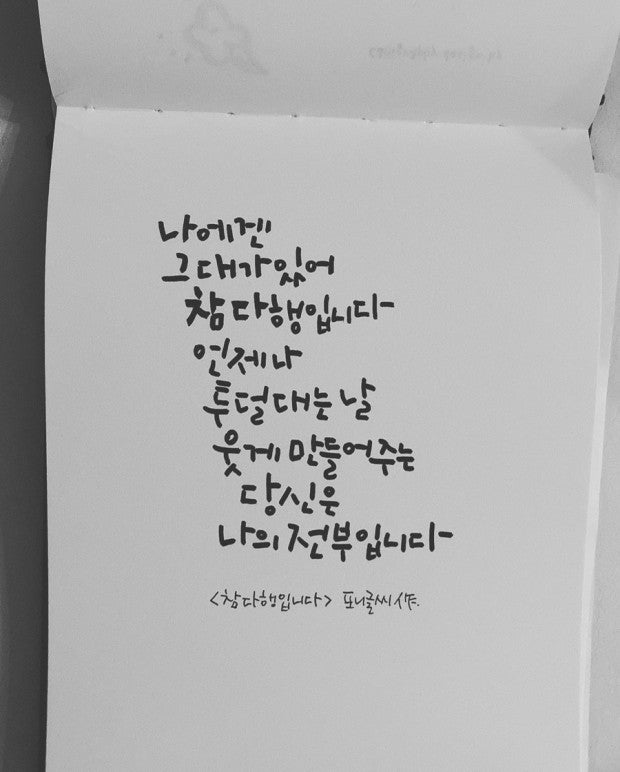 나에겐
그대가 있어
참 다행입니다
언제나
투덜대는 날
웃게 만들어주는
당신은
나의 전부입니다
<참 다행입니다> 포니글씨 作.